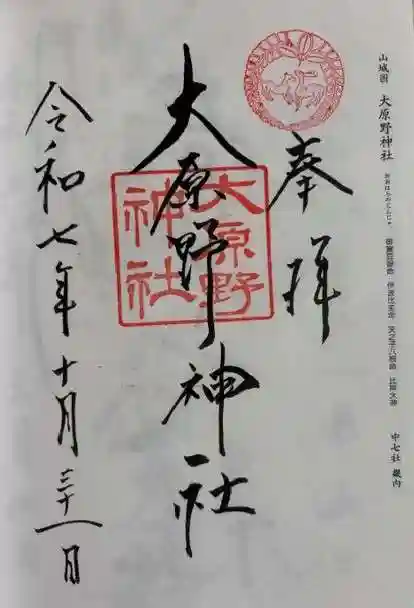 山城國 大原野神社 おおはらのじんじゃ 建御賀豆智命 伊波比主命 天之子八根命 比咩大神 中七社 畿内
奉拝
大原野神社
大原野
神社
令和七年十月三十一日